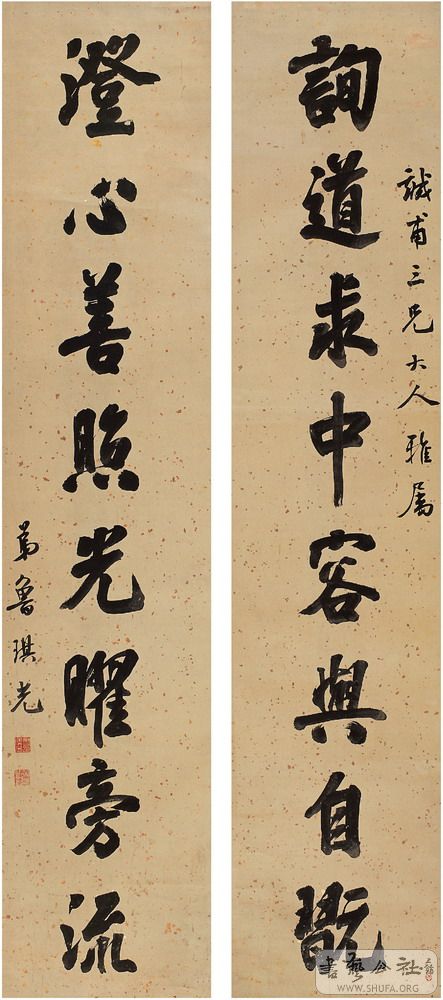 誠甫三兄大人雅屬
詢道求中容與自翫
澄心善照光曜旁流
弟魯琪光
書藝公社
WWW.SHUFA.ORG